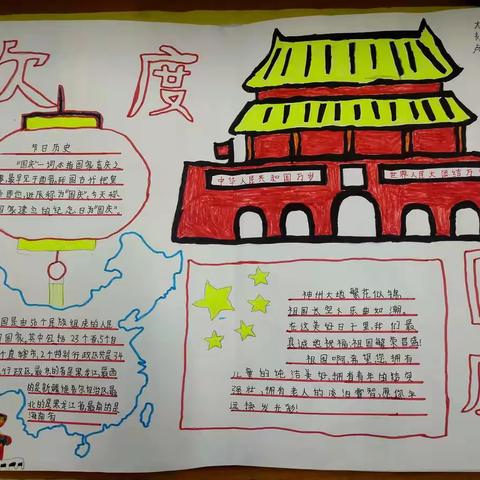 欢 度
今日历史
"国庆"一词,本指国家喜庆之
事,最早见于西晋。我国古代把皇
称为"国庆"。今天称
国家建立的纪念日为"国庆"。
中华人民共和国万岁
世界人民大团结万
国是由56个民族组成的人民
国家,其中包括23个省,5个自
个直辖市,2个特别行政区,共34
行政区,最东的省是黑龙江,最西
的是新疆维吾尔自治区,最
北的是黑龙江省,最南的是
海南省
神州大地繁花似锦,
祖国长空乐曲如潮。
在这美好日子里,我们最
真诚地祝福:祖国繁荣昌盛!
祖国啊,希望您拥有
儿童的纯洁美好,拥有青年的结实
强壮,拥有老人的淡泊睿智,愿你永
远快步发展!
国
庆